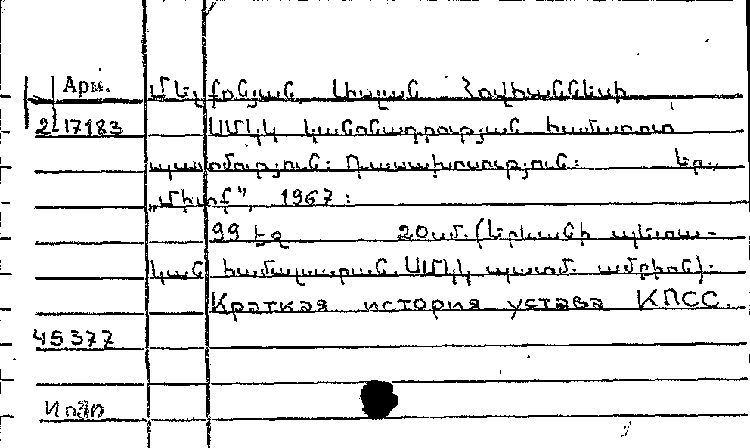 Арм.
Մելքոնյան Լիպան Հովհաննեսի
2 17183
ՍՄԿԿ կանոնադրության համառոտ
պատմություն: Դասախոսություն: Եր.,
„Միտք”, 1967:
99 էջ 20սմ. (Երևանի պետա-
կան համալսարան ՍՄԿԿ պատմ. ամբիոն):
Краткая история устава КПСС.
45377